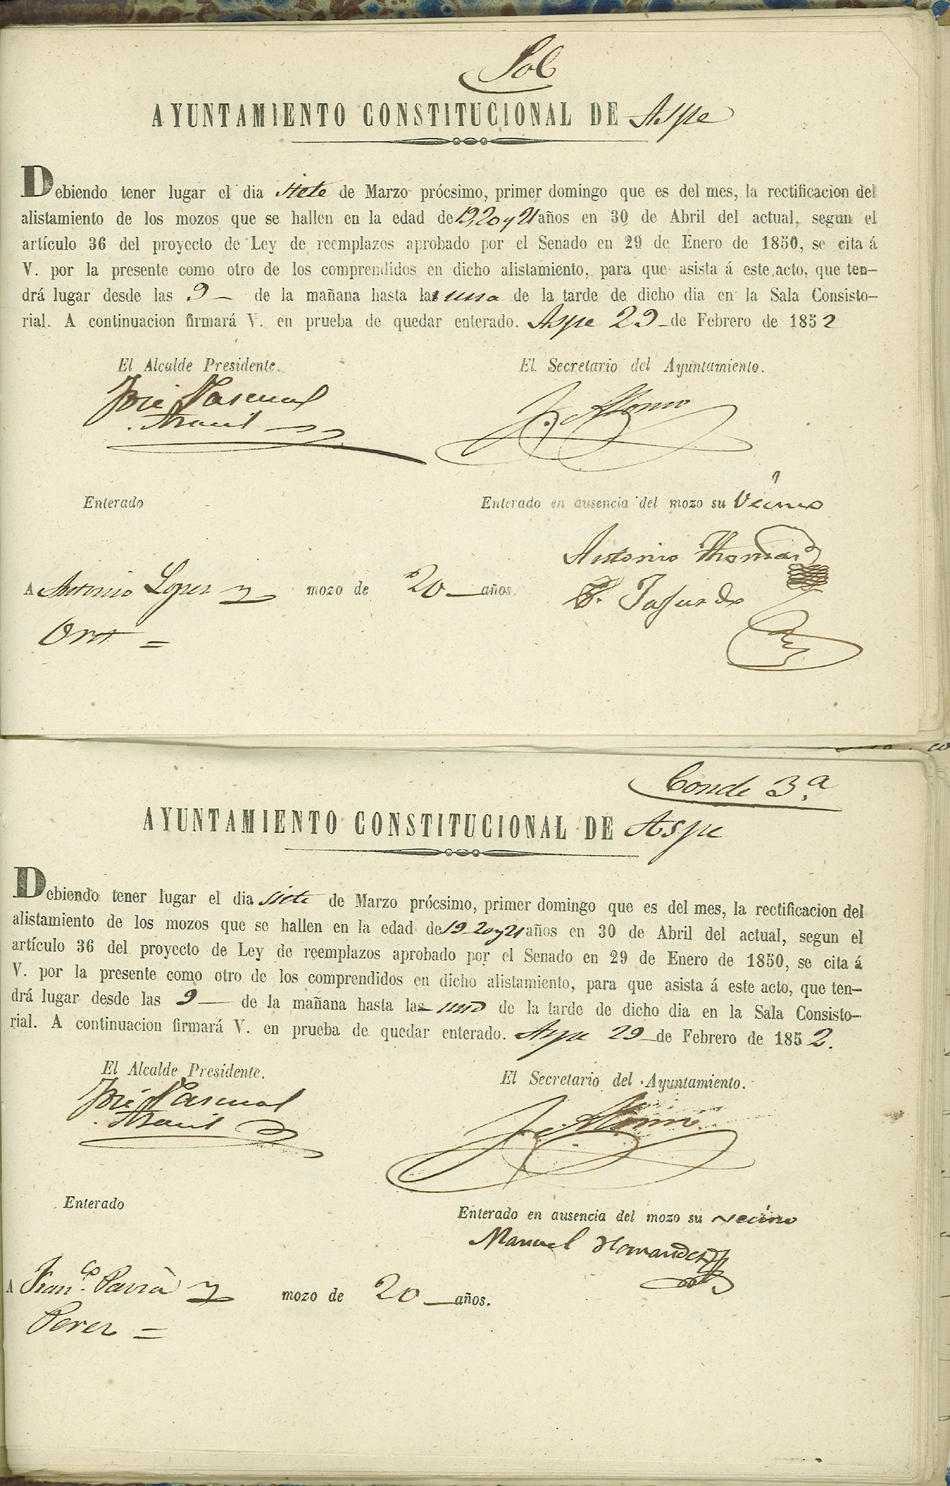 Sol
AYUNTAMIENTO CONSTITUCIONAL DE Aspe
Debiendo tener lugar el dia siete de Marzo prócsimo, primer domingo que es del mes, la rectificacion del
alistamiento de los mozos que se hallen en la edad de 19, 20 y 21 años en 30 de Abril del actual, segun el
artículo 36 del proyecto de Ley de reemplazos aprobado por el Senado en 29 de Enero de 1850, se cita á
V. por la presente como otro de los comprendidos en dicho alistamiento, para que asista á este acto, que ten-
drá lugar desde las 9 de la mañana hasta la una de la tarde de dicho dia en la Sala Consisto-
rial. A continuacion firmará V. en prueba de quedar enterado. Aspe 29 de Febrero de 1852
El Alcalde Presidente. El Secretario del Ayuntamiento.
José Pascual J. Alonso
Enterado Enterado en ausencia del mozo su Vecino
Antonio Thomas
A Antonio Lopez y mozo de 20 años.
Conde 3.ª
AYUNTAMIENTO CONSTITUCIONAL DE Aspe
Debiendo tener lugar el dia siete de Marzo prócsimo, primer domingo que es del mes, la rectificacion del
alistamiento de los mozos que se hallen en la edad de 19 20 y 21 años en 30 de Abril del actual, segun el
artículo 36 del proyecto de Ley de reemplazos aprobado por el Senado en 29 de Enero de 1850, se cita á
V. por la presente como otro de los comprendidos en dicho alistamiento, para que asista á este acto, que ten-
drá lugar desde las 9 de la mañana hasta la una de la tarde de dicho dia en la Sala Consisto-
rial. A continuacion firmará V. en prueba de quedar enterado. Aspe 29 de Febrero de 1852.
El Alcalde Presidente. El Secretario del Ayuntamiento.
José Pascual J. Alonso
Enterado
Enterado en ausencia del mozo su vecino
Manuel Hernandez
A Fran.co Pavia y mozo de 20 años.
Perez =